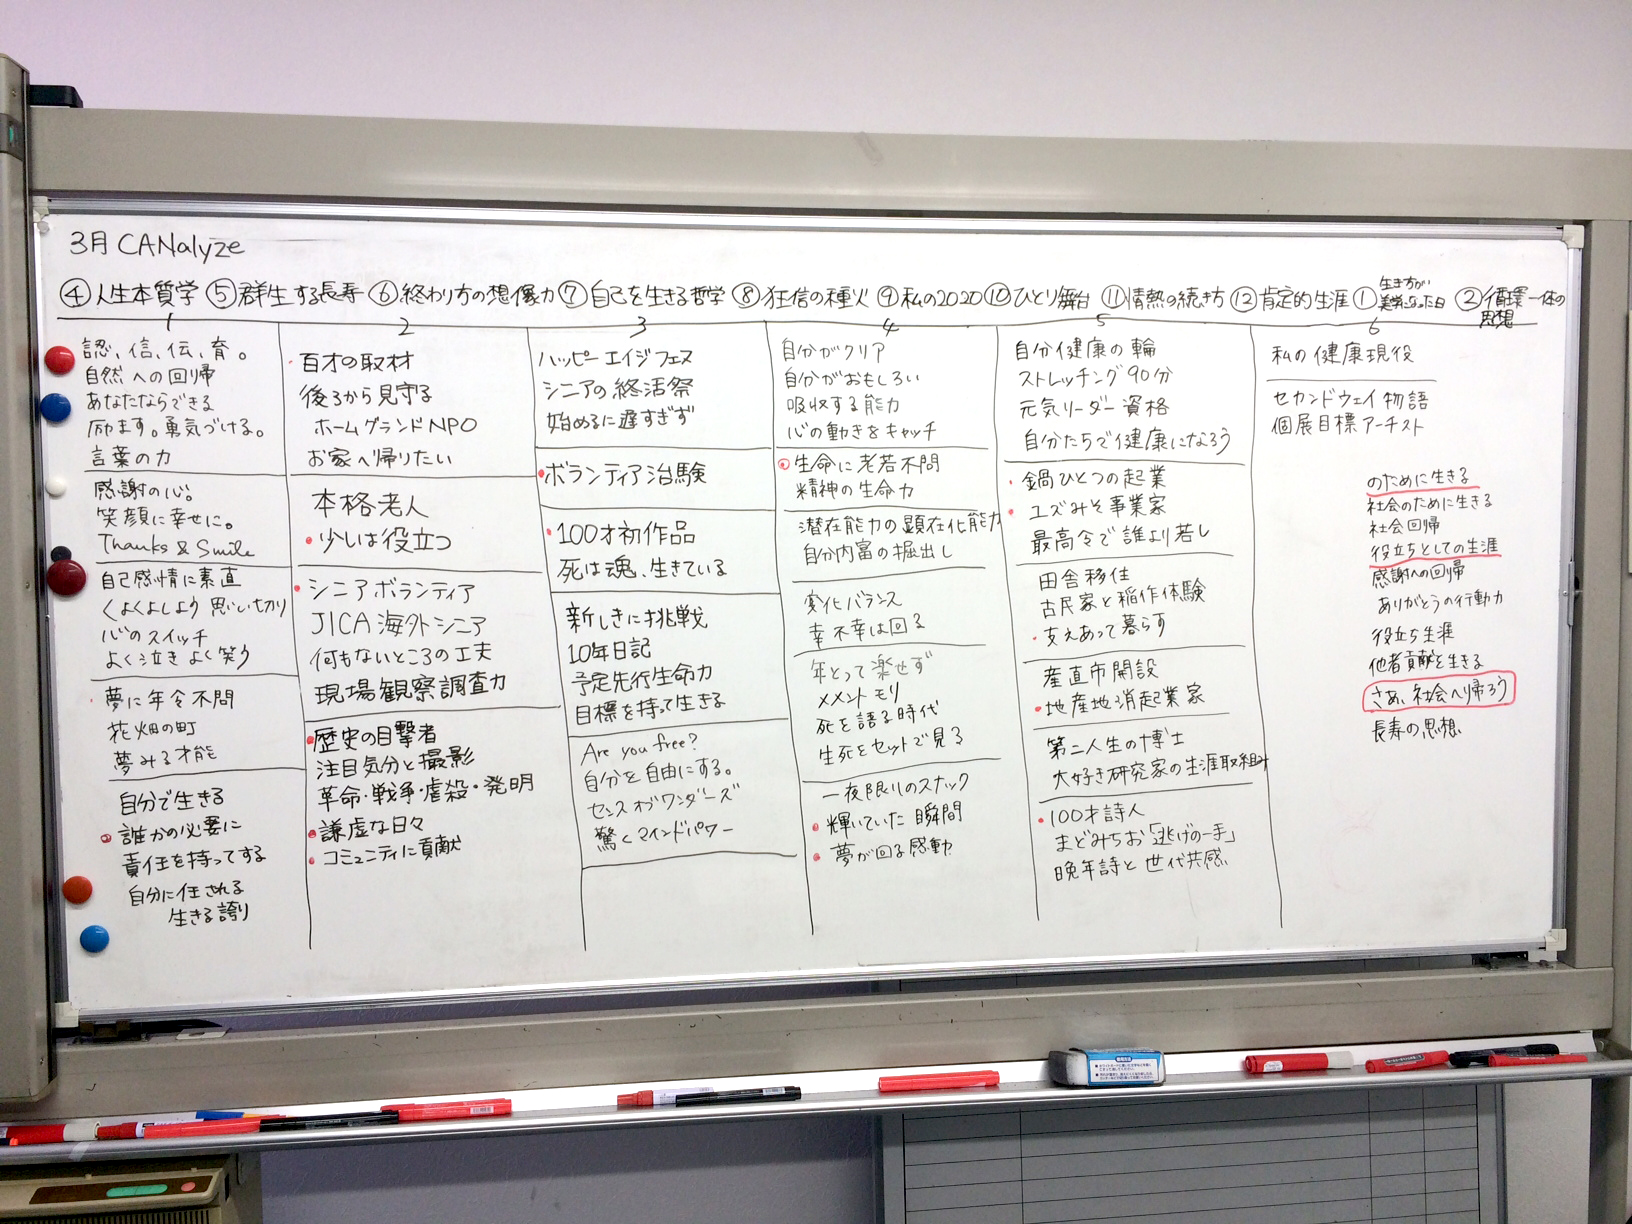 3月 CANalyze
④人生本質学 ⑤群生する長寿 ⑥終わり方の想像力 ⑦自己を生きる哲学 ⑧狂信の種火 ⑨私の2020 ⑩ひとり舞台 ⑪情熱の続き方 ⑫肯定的生涯 ①生き方が美学になった日 ②循環一体の思想
1
認、信、伝、育。
自然への回帰
あなたならできる
励ます。勇気づける。
言葉の力
感謝の心。
笑顔に幸せに。
Thanks & Smile
自己感情に素直
くよくよしよう 思い切り
心のスイッチ
よく泣き よく笑う
夢に年令不問
花畑の町
夢みる才能
自分で生きる
誰かの必要に
責任を持ってする
自分に任される
生きる誇り
2
百才の取材
後ろから見守る
ホームグランドNPO
お家へ帰りたい
本格老人
少しは役立つ
シニアボランティア
JICA海外シニア
何もないところの工夫
現場観察調査力
歴史の目撃者
注目気分と撮影
革命・戦争・虐殺・発明
謙虚な日々
コミュニティに貢献
3
ハッピーエイジフェス
シニアの終活祭
始めるに遅すぎず
ボランティア治験
100才初作品
死は魂、生きている
新しきに挑戦
10年日記
予定先行生命力
目標を持って生きる
Are you free?
自分を自由にする。
センスオブワンダーズ
驚くマインドパワー
4
自分がクリア
自分がおもしろい
吸収する能力
心の動きをキャッチ
生命に老若不問
精神の生命力
潜在能力の顕在化能力
自分内富の掘出し
変化バランス
幸不幸は回る
年とって楽せず
メメントモリ
死を語る時代
生死をセットで見る
一夜限りのスナック
輝いていた瞬間
夢が回る感動
5
自分健康の輪
ストレッチング90分
元気リーダー資格
自分たちで健康になろう
鍋ひとつの起業
ユズみそ事業家
最高令で誰より若し
田舎移住
古民家と稲作体験
支えあって暮らす
産直市開設
地産地消起業家
第二人生の博士
大好き研究家の生涯取組み
100才詩人
まどみちお「逃げの一手」
晩年詩と世代共感
6
私の健康現役
セカンドウェイ物語
個展目標アーチスト
のために生きる
社会のために生きる
社会回帰
役立ちとしての生涯
感謝への回帰
ありがとうの行動力
役立ち生涯
他者貢献を生きる
さあ、社会へ帰ろう
長寿の思想